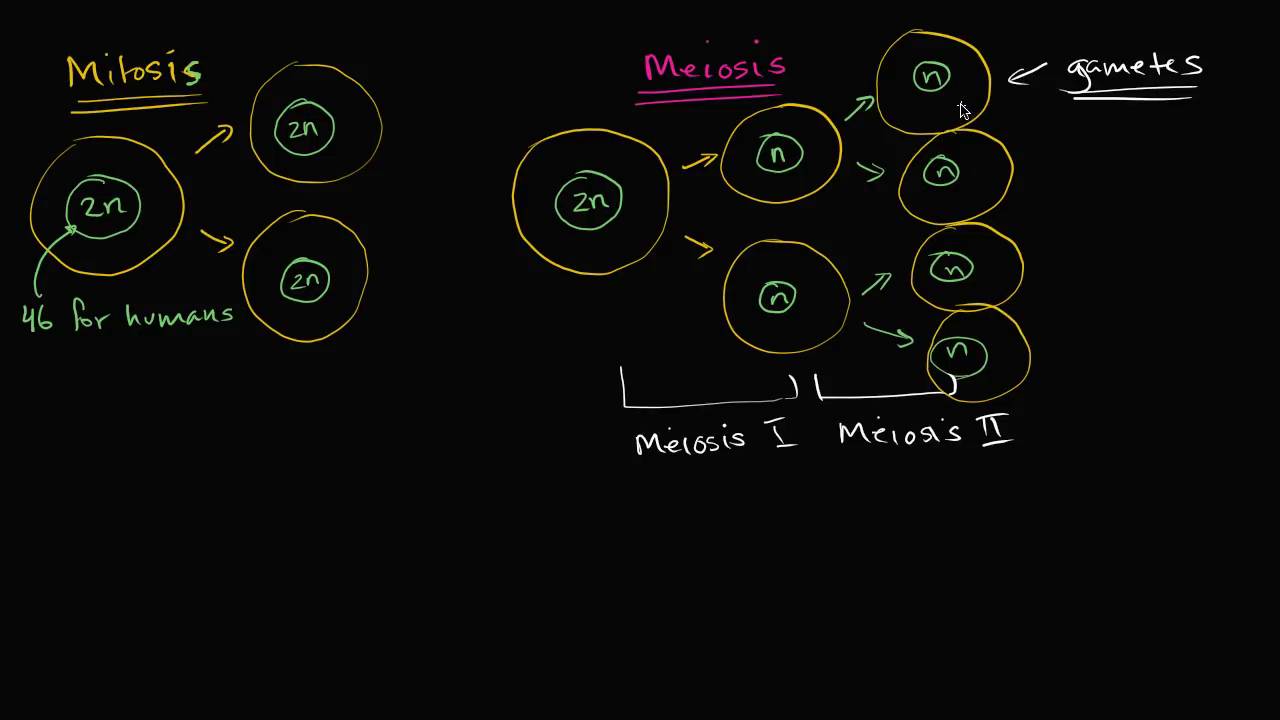 Mitosis
2n
2n
2n
46 for humans
Meiosis
2n
n
n
n
n
n
n
gametes
Meiosis I
Meiosis II